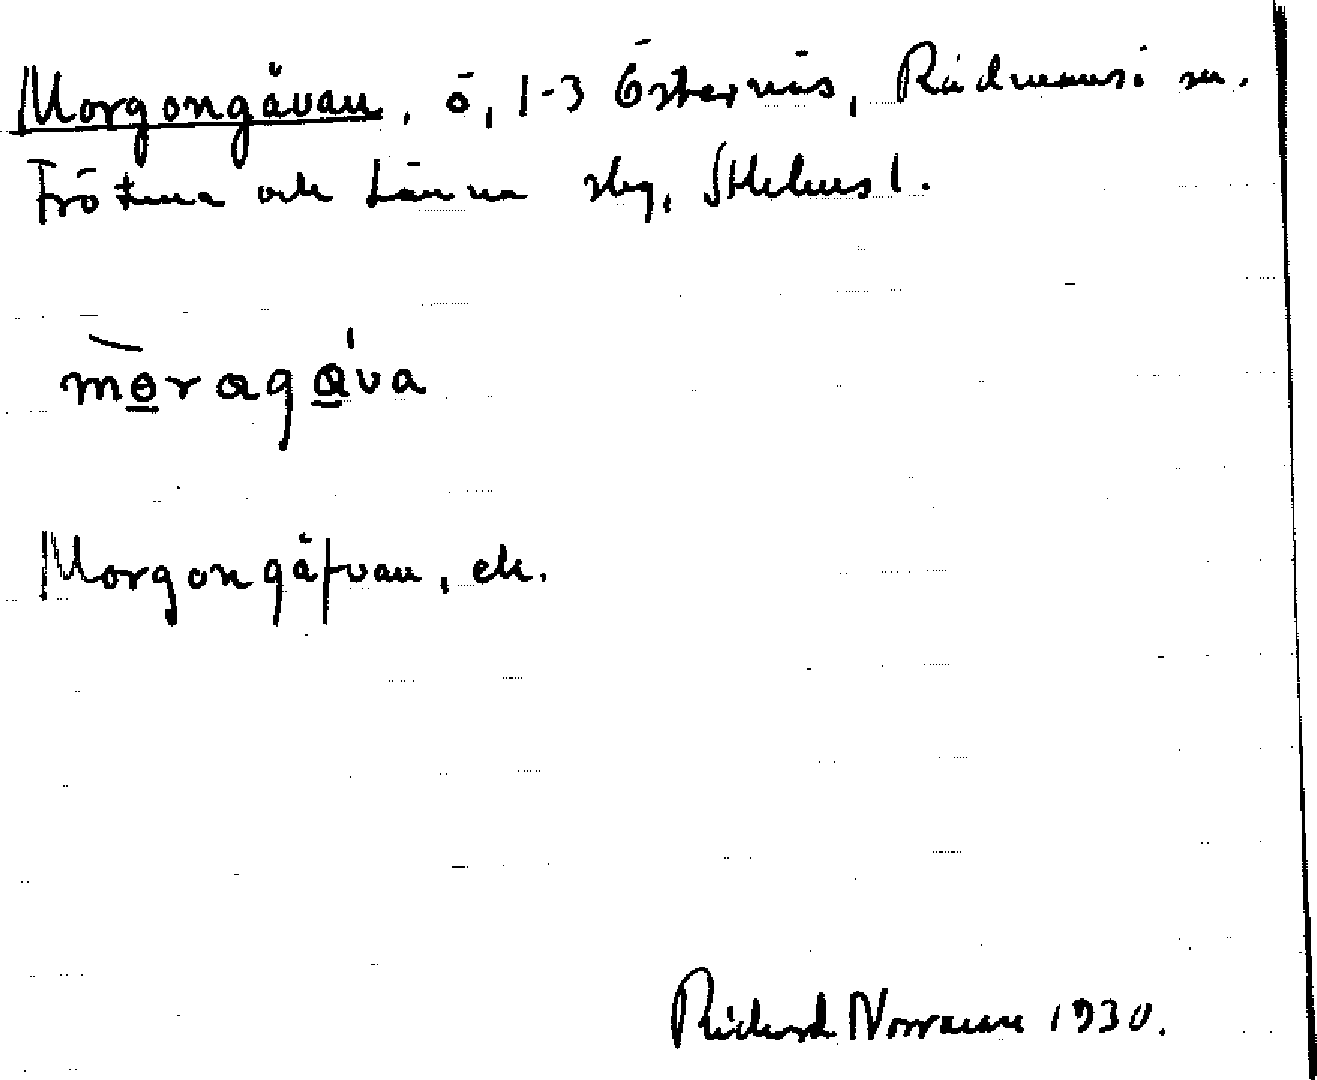 Morgongåvan, ö, 1-3 Östernäs, Rådmansö sn.
Frötuna och Länna skg, Sthlms l.
mòragáva
Morgongåfvan, ek.
Rickard Norrman 1930.